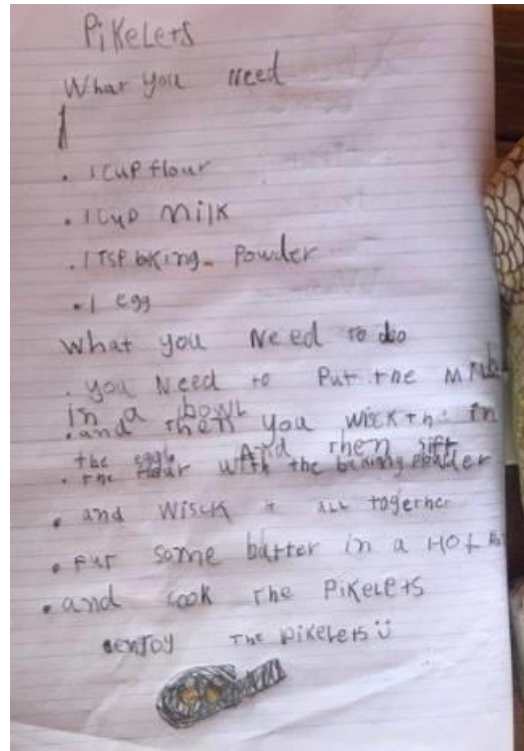 Pikelets
What you need
. 1 cup flour
. 1 cup milk
. 1 Tsp bking - powder
. 1 egg
what you Need to do
. you Need to Put the Milk
in a bowl
. and then you wisk the in
the eggs And then sift
. the flour with the baking powder
. and wisck it all together
. Put some batter in a Hot
. and cook the Pikelets
enjoy the pikelets ü